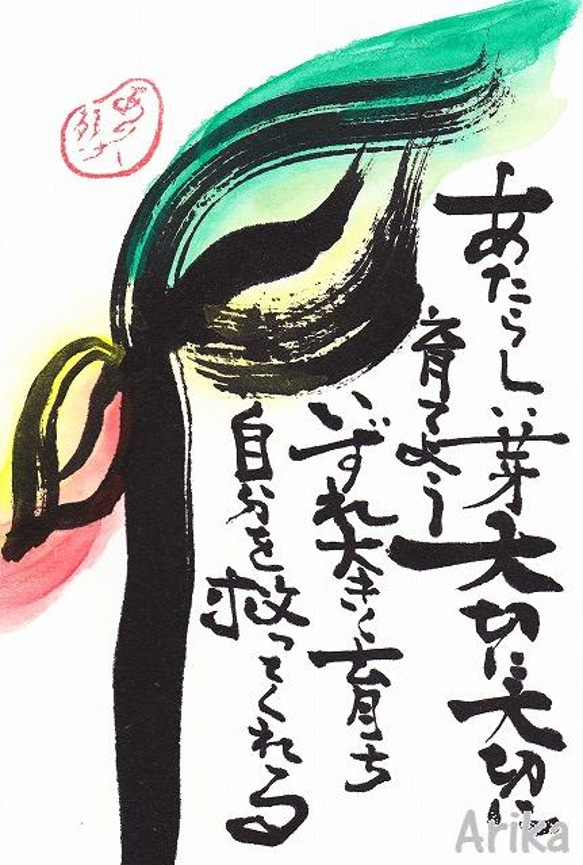 あたらしい芽大切に大切に
育てよう
いずれ大きく育ち
自分を救ってくれる
Arika